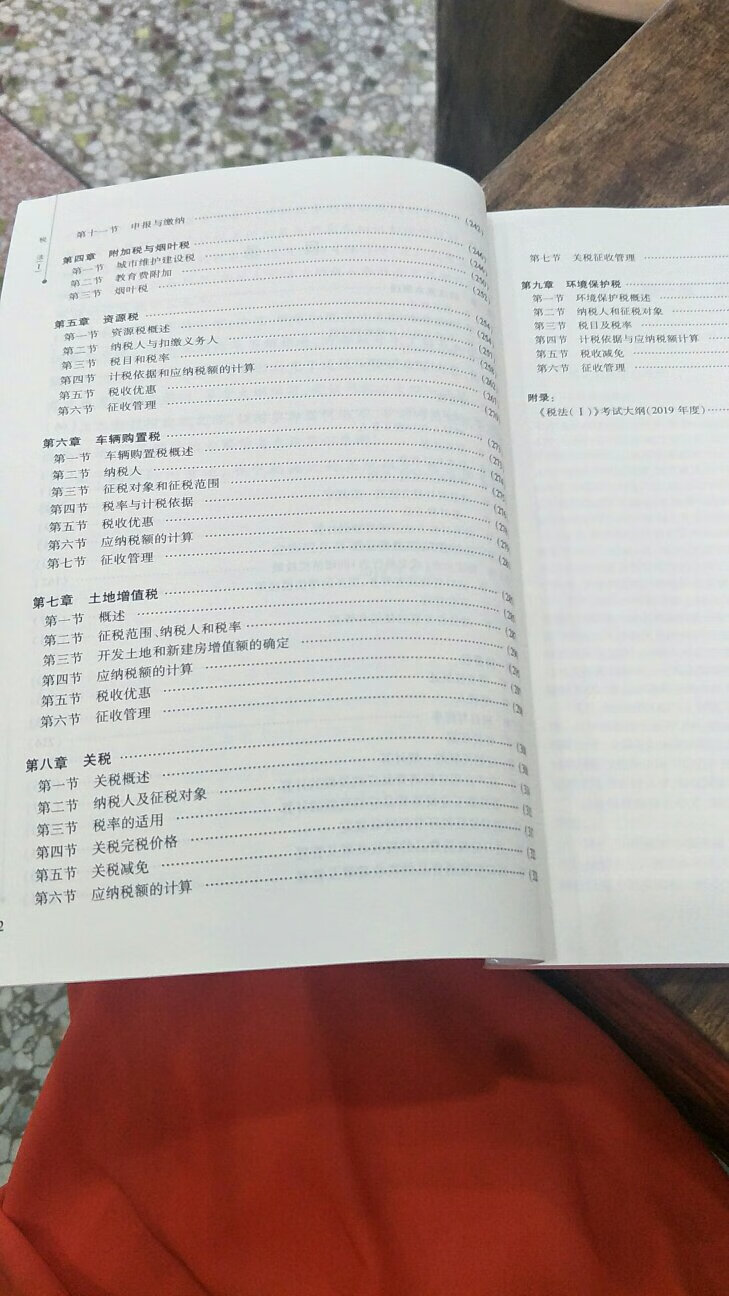 税 法(Ⅰ)
第十一节 申报与缴纳 (242)
第四章 附加税与烟叶税 (246)
第一节 城市维护建设税 (246)
第二节 教育费附加 (250)
第三节 烟叶税 (252)
第五章 资源税 (254)
第一节 资源税概述 (254)
第二节 纳税人与扣缴义务人
第三节 税目和税率
第四节 计税依据和应纳税额的计算 (262)
第五节 税收优惠 (267)
第六节 征收管理 (270)
第六章 车辆购置税 (273)
第一节 车辆购置税概述 (273)
第二节 纳税人 (274)
第三节 征税对象和征税范围 (275)
第四节 税率与计税依据 (276)
第五节 税收优惠
第六节 应纳税额的计算
第七节 征收管理
第七章 土地增值税
第一节 概述
第二节 征税范围、纳税人和税率
第三节 开发土地和新建房增值额的确定
第四节 应纳税额的计算
第五节 税收优惠
第六节 征收管理
第八章 关税
第一节 关税概述
第二节 纳税人及征税对象
第三节 税率的适用
第四节 关税完税价格
第五节 关税减免
第六节 应纳税额的计算
2
第七节 关税征收管理
第九章 环境保护税
第一节 环境保护税概述
第二节 纳税人和征税对象
第三节 税目及税率
第四节 计税依据与应纳税额计算
第五节 税收减免
第六节 征收管理
附录：
《税法(Ⅰ)》考试大纲(2019 年度)